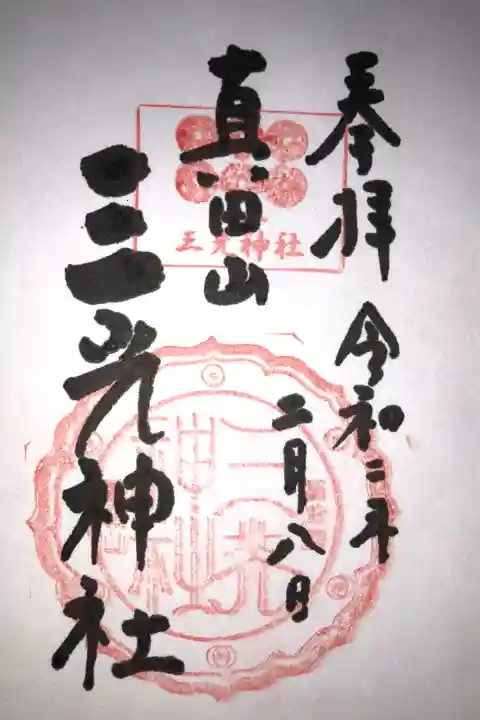 奉拝
令和二年
二月八日
真田山
三光神社
三光神社
三光神社